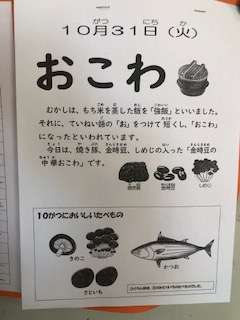 10月31日（火）
おこわ
むかしは、もち米を蒸した飯を「強飯」といいました。
それに、ていねい語の「お」をつけて短くし、「おこわ」
になったといわれています。
今日は、焼き豚、金時豆、しめじの入った「金時豆の
中華おこわ」です。
しめじ
10がつにおいしいたべもの
きのこ
かつお
さといも